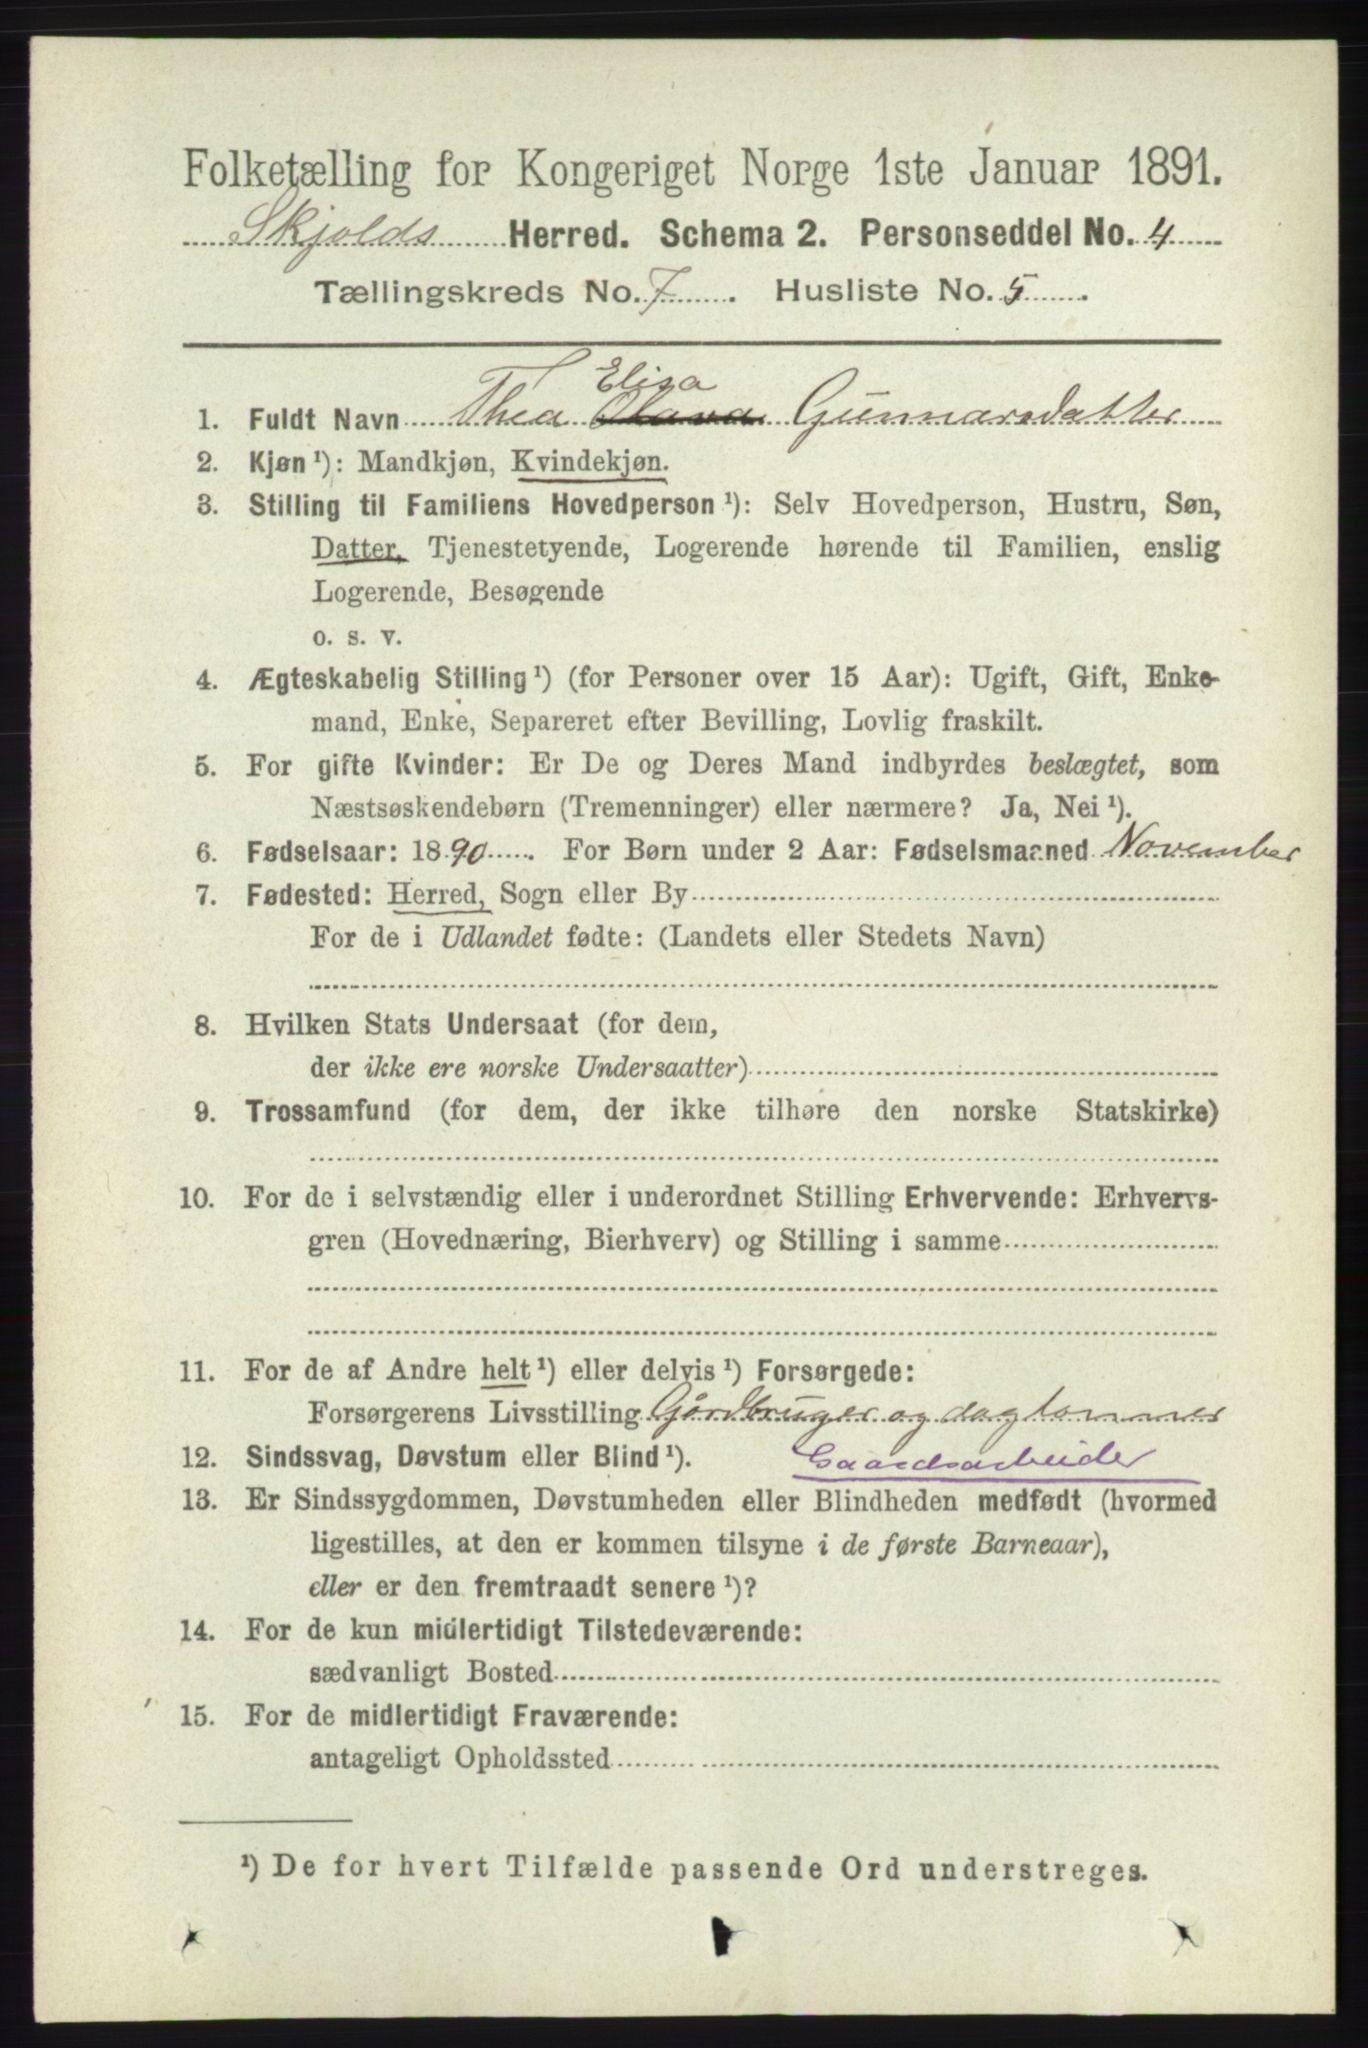 Folketælling for Kongeriget Norge 1ste Januar 1891.
Skjolds Herred. Schema 2. Personseddel No. 4
Tællingskreds No. 7 . Husliste No. 5 .
Elisa
1. Fuldt Navn Thea Olava Gunnarsdatter
2. Kjøn ¹): Mandkjøn, Kvindekjøn.
3. Stilling til Familiens Hovedperson ¹): Selv Hovedperson, Hustru, Søn,
Datter, Tjenestetyende, Logerende hørende til Familien, enslig
Logerende, Besøgende
o. s. v.
4. Ægteskabelig Stilling ¹) (for Personer over 15 Aar): Ugift, Gift, Enke-
mand, Enke, Separeret efter Bevilling, Lovlig fraskilt.
5. For gifte Kvinder: Er De og Deres Mand indbyrdes beslægtet, som
Næstsøskendebørn (Tremenninger) eller nærmere? Ja, Nei ¹).
6. Fødselsaar: 1890 . For Børn under 2 Aar: Fødselsmaaned November
7. Fødested: Herred, Sogn eller By
For de i Udlandet fødte: (Landets eller Stedets Navn)
8. Hvilken Stats Undersaat (for dem,
der ikke ere norske Undersaatter)
9. Trossamfund (for dem, der ikke tilhøre den norske Statskirke)
10. For de i selvstændig eller i underordnet Stilling Erhvervende: Erhvervs-
gren (Hovednæring, Bierhverv) og Stilling i samme
11. For de af Andre helt ¹) eller delvis ¹) Forsørgede:
Forsørgerens Livsstilling Gårdbruger og dagtommer
12. Sindssvag, Døvstum eller Blind ¹). Gaardsarbeider
13. Er Sindssygdommen, Døvstumheden eller Blindheden medfødt (hvormed
ligestilles, at den er kommen tilsyne i de første Barneaar),
eller er den fremtraadt senere ¹)?
14. For de kun midlertidigt Tilstedeværende:
sædvanligt Bosted
15. For de midlertidigt Fraværende:
antageligt Opholdssted
¹) De for hvert Tilfælde passende Ord understreges.